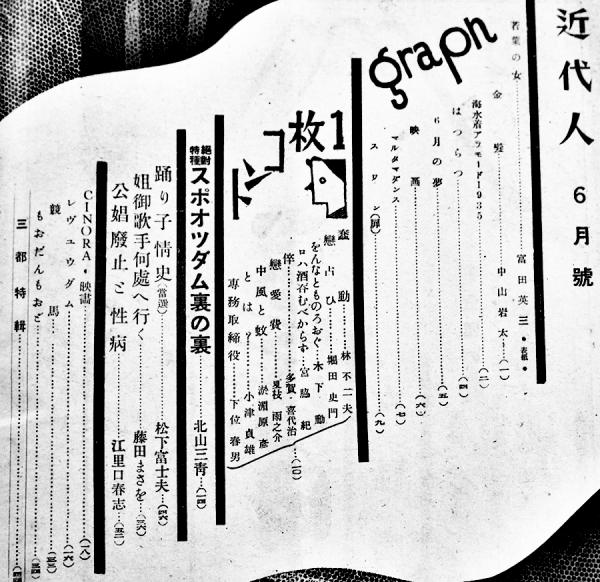 近代人 6月號
graph
若葉の女……富田英三・表紙・
金髪……中山岩太…(一)
海水着アラモード1935……(二)
はつらつ……(四)
6月の夢……(五)
映画……(六)
マルタマダンス……(七)
スワン(扉)……(九)
1枚コント
蠢動……林不二夫
戀占ひ……堀田史門
をんなとものろおぐ・木下勤
ロハ酒吞むべからず・宮脇紀
倅……多賀・喜代治…(一〇)
戀愛費……夏枝雨之介
中風と蚊……淤瀰原彦
とは?……小津貞雄
專務取締役 下位春男
絶對特種 スポオツダム裏の裏……北山三青…(一四)
踊り子情史(當選)……松下富士夫…(四六)
姐御歌手何處へ行く……藤田まさを…(三六)
公娼廢止と性病……江里口春志…(五二)
CINORA・映畵……(一八)
レヴュウダム……(二六)
競馬……(三三)
もおだんもおど……(三四)
三都特輯